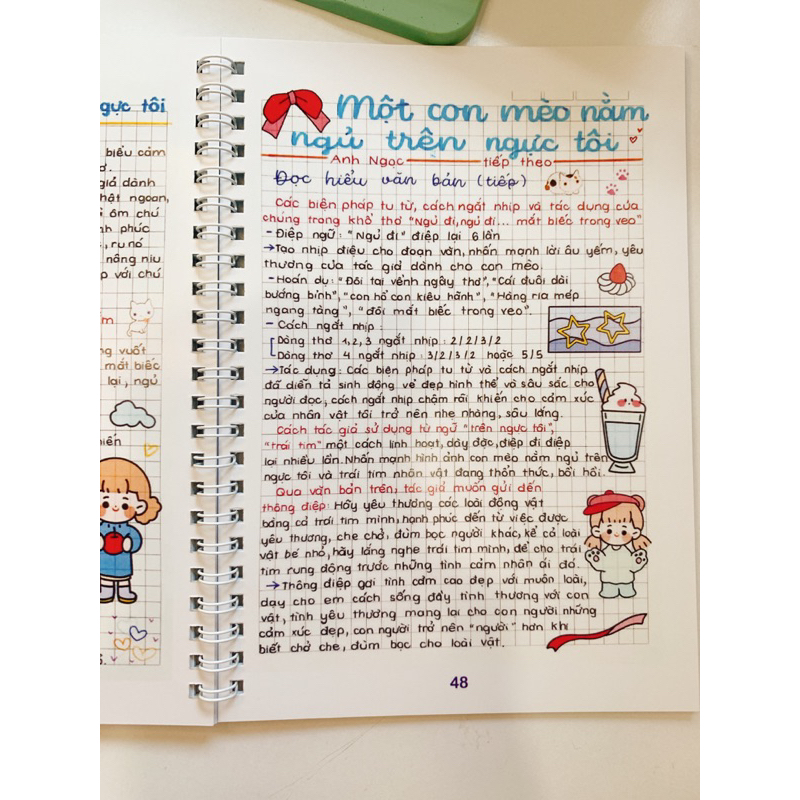 gực tôi
biểu cảm
ơ.
giả dành
hật ngoan,
i ôm chú
h phúc
, ru nó
nâng niu
p với chú
m
ng vuốt
mắt biếc
lại, ngủ
hiến
S.
Một con mèo nằm
ngủ trên ngực tôi
Anh Ngọc tiếp theo
Đọc hiểu văn bản (tiếp)
Các biện pháp tu từ, cách ngắt nhịp và tác dụng của
chúng trong khổ thơ "Ngủ đi, ngủ đi... mắt biếc trong veo"
- Điệp ngữ: "Ngủ đi" điệp lại 6 lần
→Tạo nhịp điệu cho đoạn văn, nhấn mạnh lời âu yếm, yêu
thương của tác giả dành cho con mèo.
- Hoán dụ: "Đôi tai vểnh ngây thơ", "Cái đuôi dài
bướng bỉnh", "con hổ con kiêu hãnh", "Hàng ria mép
ngang tàng", "đôi mắt biếc trong veo".
- Cách ngắt nhịp:
Dòng thơ 1, 2, 3 ngắt nhịp: 2/2/3/2
Dòng thơ 4 ngắt nhịp: 3/2/3/2 hoặc 5/5
→Tác dụng: Các biện pháp tu từ và cách ngắt nhịp
đã diễn tả sinh động vẻ đẹp hình thể và sâu sắc cho
người đọc, cách ngắt nhịp chậm rãi khiến cho cảm xúc
của nhân vật tôi trở nên nhẹ nhàng, sâu lắng.
Cách tác giả sử dụng từ ngữ "trên ngực tôi",
"trái tim" một cách linh hoạt, dày đặc, điệp đi điệp
lại nhiều lần. Nhấn mạnh hình ảnh con mèo nằm ngủ trên
ngực tôi và trái tim nhân vật đang thổn thức, bồi hồi.
Qua văn bản trên, tác giả muốn gửi đến
thông điệp: Hãy yêu thương các loài động vật
bằng cả trái tim mình, hạnh phúc đến từ việc được
yêu thương, che chở, đùm bọc người khác, kể cả loài
vật bé nhỏ, hãy lắng nghe trái tim mình, để cho trái
tim rung động trước những tình cảm nhân ái đó.
→ Thông điệp gợi tình cảm cao đẹp với muôn loài,
dạy cho em cách sống đầy tình thương với con
vật, tình yêu thương mang lại cho con người những
cảm xúc đẹp, con người trở nên "người" hơn khi
biết chở che, đùm bọc cho loài vật.
48